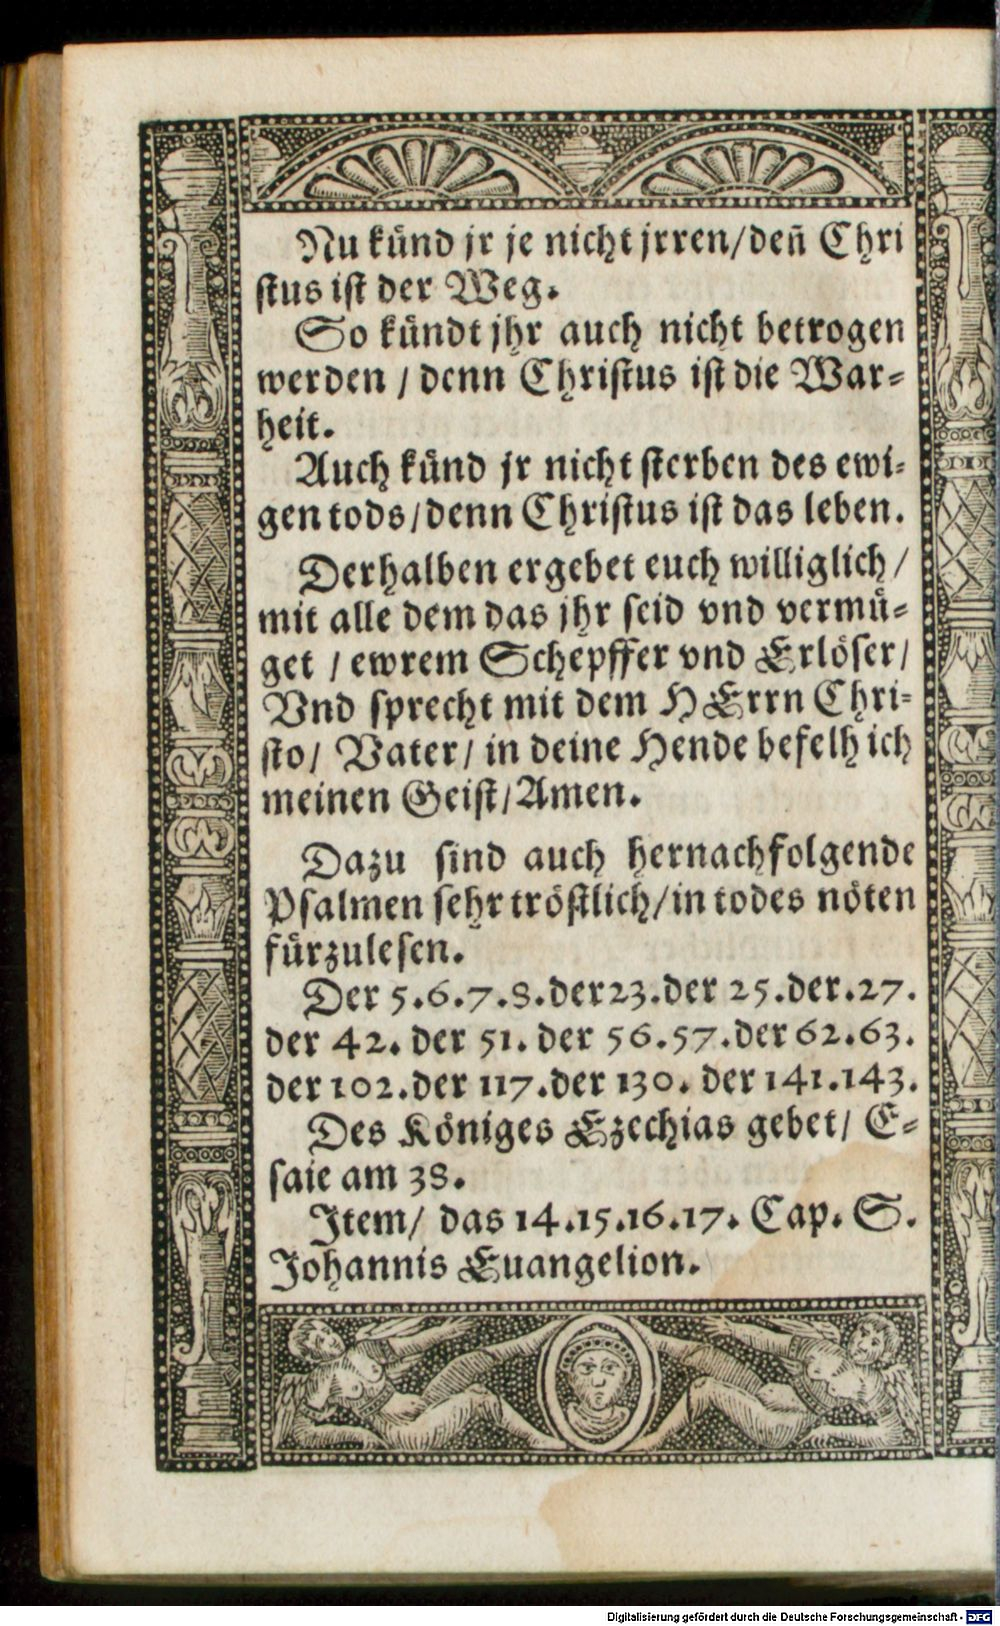 Nu künd jr je nicht jrren/deñ Chri
stus ist der Weg.
So kündt jhr auch nicht betrogen
werden / denn Christus ist die War⸗
heit.
Auch künd jr nicht sterben des ewi⸗
gen tods/denn Christus ist das leben.
Derhalben ergebet euch williglich/
mit alle dem das jhr seid vnd vermü⸗
get / ewrem Schepffer vnd Erlöser/
Vnd sprecht mit dem HErrn Chri⸗
sto/ Vater/ in deine Hende befelh ich
meinen Geist/Amen.
Dazu sind auch hernachfolgende
Psalmen sehr tröstlich/in todes nöten
fürzulesen.
Der 5.6.7.8.der 23.der 25.der.27.
der 42. der 51. der 56.57.der 62.63.
der 102.der 117.der 130. der 141.143.
Des Königes Ezechias gebet/ E⸗
saie am 38.
Item/ das 14.15.16.17. Cap. S.
Johannis Euangelion.
Digitalisierung gefördert durch die Deutsche Forschungsgemeinschaft - DFG